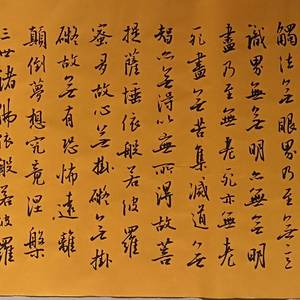 觸法無眼界乃至無意
識界無無明亦無無明
盡乃至無老死亦無老
死盡無苦集滅道無
智亦無得以無所得故菩
提薩埵依般若波羅
蜜多故心無掛礙無掛
礙故無有恐怖遠離
顛倒夢想究竟涅槃
三世諸佛依般若波羅